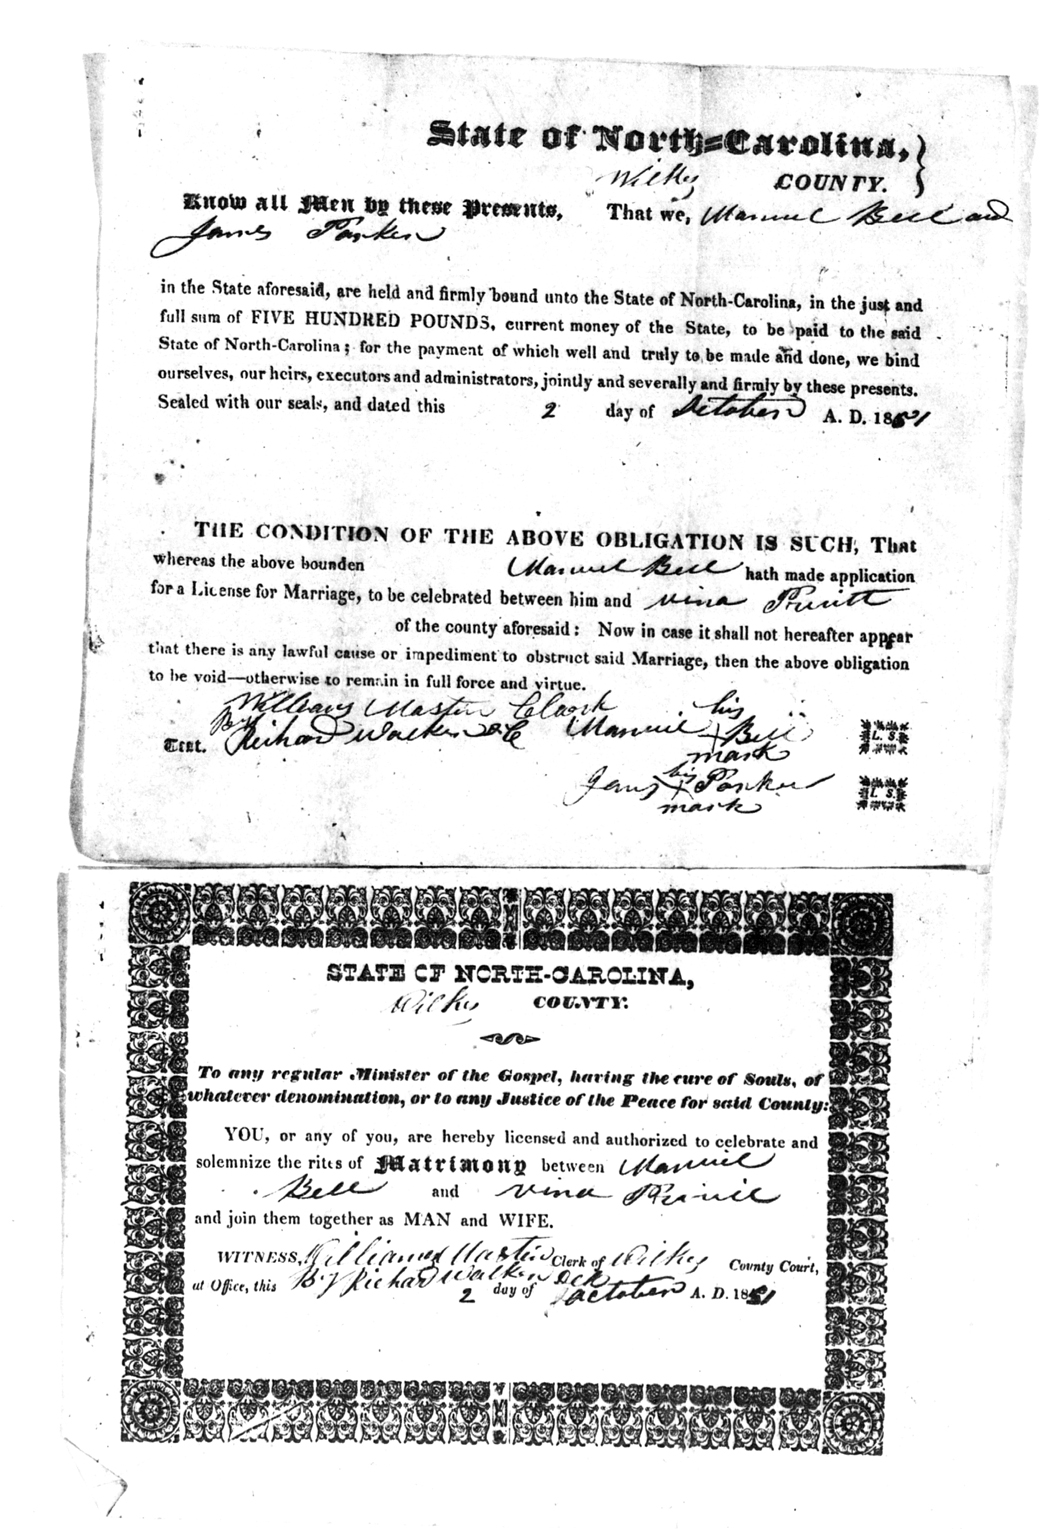 State of North-Carolina,
Wilkes COUNTY.
Know all Men by these Presents, That we, Manuel Bell and
James Parker
in the State aforesaid, are held and firmly bound unto the State of North-Carolina, in the just and
full sum of FIVE HUNDRED POUNDS, current money of the State, to be paid to the said
State of North-Carolina; for the payment of which well and truly to be made and done, we bind
ourselves, our heirs, executors and administrators, jointly and severally and firmly by these presents.
Sealed with our seals, and dated this 2 day of October A. D. 1851
THE CONDITION OF THE ABOVE OBLIGATION IS SUCH, That
whereas the above bounden Manuel Bell hath made application
for a License for Marriage, to be celebrated between him and Vina Pruitt
of the county aforesaid: Now in case it shall not hereafter appear
that there is any lawful cause or impediment to obstruct said Marriage, then the above obligation
to be void—otherwise to remain in full force and virtue.
William Mastin Clerk his
By Richard Walker DC Manuel + Bell L. S.
Test. mark
his
James + Parker L. S.
mark
STATE OF NORTH-CAROLINA,
Wilkes COUNTY.
To any regular Minister of the Gospel, having the cure of Souls, of
whatever denomination, or to any Justice of the Peace for said County:
YOU, or any of you, are hereby licensed and authorized to celebrate and
solemnize the rites of Matrimony between Manuel
Bell and Vina Pruit
and join them together as MAN and WIFE.
WITNESS, William Mastin Clerk of Wilkes County Court,
By Richard Walker DCk
at Office, this 2 day of October A. D. 1851